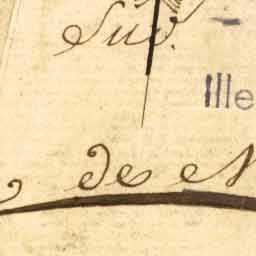 Sud.
Ille
de